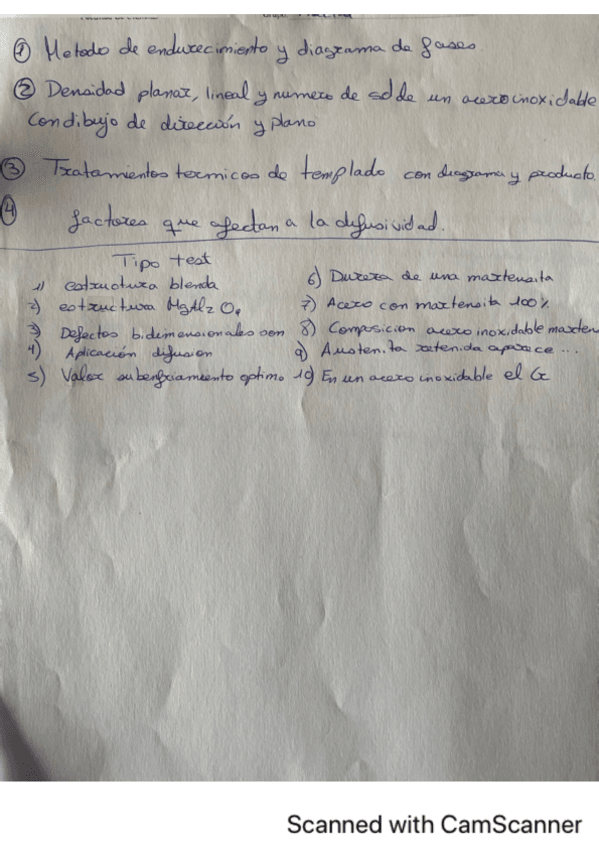 ① Metodo de endurecimiento y diagrama de fases.
② Densidad planar, lineal y numero de sd de un acero inoxidable
Con dibujo de dirección y plano
③ Tratamientos termicos de templado con diagrama y producto.
④ factores que afectan a la difusividad.
Tipo test
1) estructura blenda
2) estructura MgAl2O4
3) Defectos bidimensionales son
4) Aplicación difusion
5) Valor subenfriamiento optimo
6) Dureza de una martensita
7) Acero con martensita 100%
8) Composicion acero inoxidable marten
9) Austenita retenida aparece ...
10) En un acero inoxidable el Cr
Scanned with CamScanner